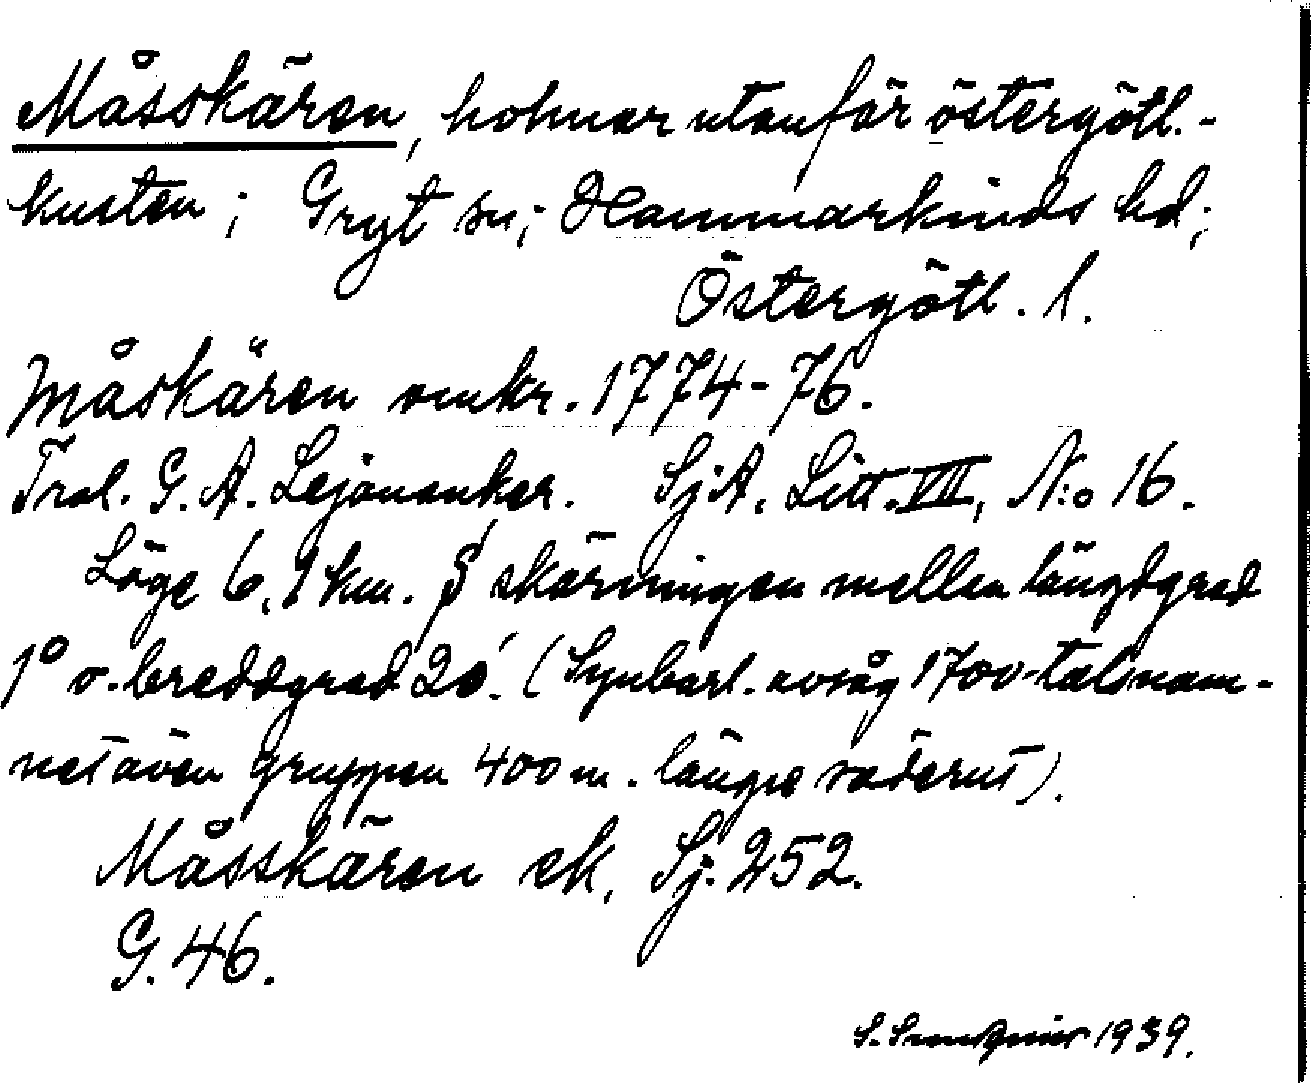 Måsskären, holmar utanför östergötl.-
kusten; Gryt sn; Hammarkinds hd;
Östergötl. l.
Måskären omkr. 1774-76.
Trol. G. A. Lejonanker. SjA. Litt. VII, N:o 16.
Läge 6,1 km. S skärningen mellan längdgrad
1° o. breddgrad 20'. (Synbarl. avsåg 1700-talsnam-
net även gruppen 400 m. längre söderut).
Måsskären ek. Sj. 252.
G. 46.
S. 1939.